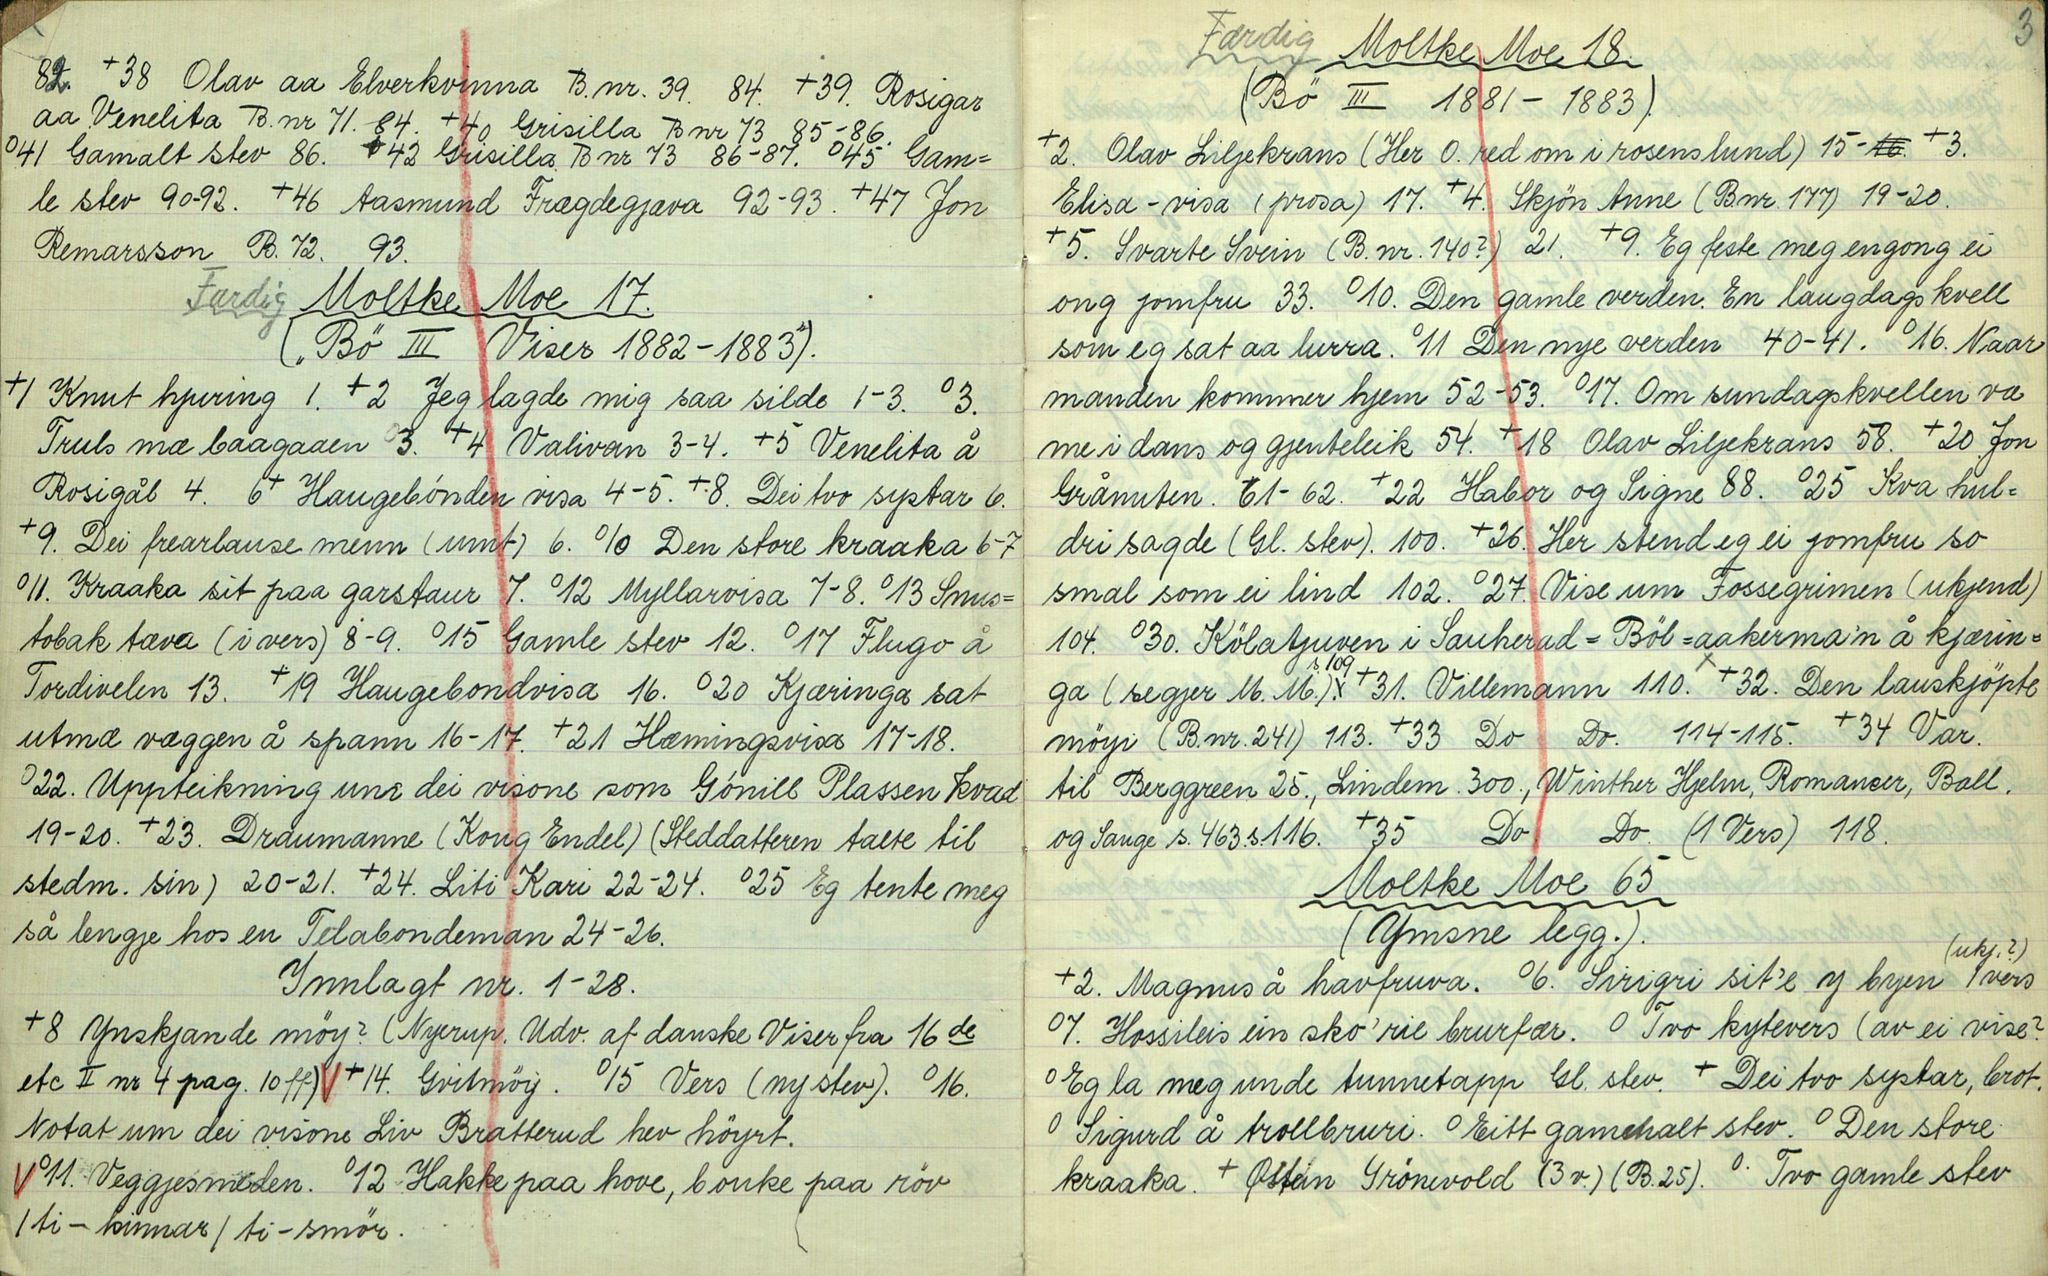 82. +38 Olav aa Elverkvinna B. nr. 39. 84. +39. Rosigar
aa Venelita B. nr 71. 84. +40 Grisilla B nr 73 85-86.
o41 Gamalt stev 86. +42 Grisilla B nr 73 86-87. o45 Gam=
le stev 90-92. +46 Aasmund Frægdegjæva 92-93. +47 Jon
Remarsson B. 72. 93.
Færdig Moltke Moe 17.
(„Bö III Viser 1882-1883“).
+1 Knut hjuring 1. +2 Jeg lagde mig saa silde 1-3. o3.
Truls mæ baagaaen 3. +4 Valivan 3-4. +5 Venelita å
Rosigål 4. 6+ Haugebónden visa 4-5. +8. Dei tvo systar 6.
+9. Dei frearlause menn (umt) 6. o10 Den store kraaka 6-7
o11. Kraaka sit paa garstaur 7. o12 Myllarvisa 7-8. o13 Snus=
tobak tæva (i vers) 8-9. o15 Gamle stev 12. o17 Flugo å
Tordivelen 13. +19 Haugebondvisa 16. o20 Kjæringa sat
utmæ væggen å spann 16-17. +21 Hæmingsvisa 17-18.
o22. Uppteikning um dei visone som Gónill Plassen kvad
19-20. +23. Draumanne (Kong Endel) (Steddatteren talte til
stedm. sin) 20-21. +24. Liti Kari 22-24. o25 Eg tente meg
så lengje hos en Telabondeman 24-26.
Innlagt nr. 1-28.
+8 Ynskjande möy? (Nyerup. Udv. af danske Viser fra 16de
etc II nr 4 pag. 10 ff) V +14. Gvitmöÿ. o15 Vers (ny stev). o16.
Notat um dei visone Liv Bratterud hev höyrt.
V o11. Veggjesmeden. o12 Hakke paa hove, bouke paa röv
/ ti - kinnar / ti - smör.
3
Færdig Moltke Moe 18.
(Bö III 1881-1883).
+2. Olav Liljekrans (Her O. red om i rosenslund) 15-16. +3.
Elisa-visa (prosa) 17. +4. Skjön Anne (B nr. 177) 19-20.
+5. Svarte Svein (B. nr. 140?) 21. +9. Eg feste meg engong ei
ong jomfru 33. o10. Den gamle verden. En laugdagskvell
som eg sat aa lurra. o11 Den nye verden 40-41. o16. Naar
manden kommer hjem 52-53. o17. Om sundagskvellen va
me i dans og gjenteleik 54. +18 Olav Liljekrans 58. +20 Jon
Grånuten. 61-62. +22 Habor og Signe 88. o25 Kva hul=
dri sagde (Gl. stev). 100. +26. Her stend eg ei jomfru so
smal som ei lind 102. o27. Vise um Fossegrimen (ukjend)
104. o30. Kölatjuven i Sauherad = Böl=aakerma'n å kjærin=
ga (segjer M. M.) x s 109 +31. Villemann 110. x +32. Den lauskjöpte
möyi (B. nr. 241) 113. +33 Do Do. 114-115. +34 Var.
til Berggreen 25., Lindem. 300., Winther Hjelm, Romancer, Ball.
og Sange s. 463. s. 116. +35 Do Do. (1 Vers) 118.
Moltke Moe 65
(Ymsne legg.).
+2. Magnus å havfruva. o6. Sirigri sit'e y byen 1 vers (ukj.?)
o7. Hossileis ein sko' rie brurfær. o Tvo kytevers (av ei vise?
o Eg la meg unde tunnetapp Gl. stev. + Dei tvo systar, brot.
o Sigurd å trollbruri. o Eitt gamalt stev. o Den store
kraaka. + Østein Grönevold (3 v.) (B. 25). o. Tvo gamle stev